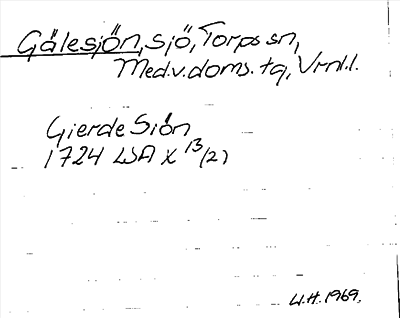 Gälesjön, sjö, Torps sn,
Med.v.doms.tg, Vrml.l.
Gierde Siön
1724 LSA X 13/(2)
W.H. 1969.